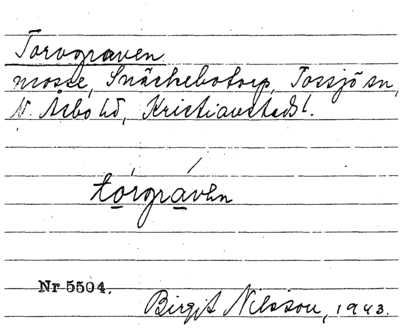 Torvgraven
mosse, Snäckebotorp, Tossjö sn,
N. Åsbo hd, Kristianstads l.
tórgráven
Nr 5504.
Birgit Nilsson, 1943.